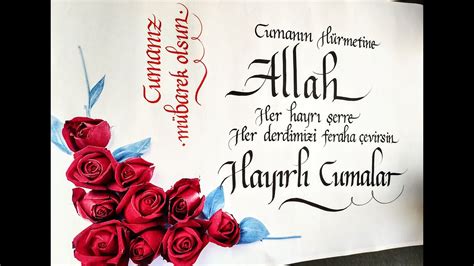 Cumanız
mübarek olsun.
Cumanın Hürmetine
Allah
Her hayrı şerre
Her derdimizi feraha çevirsin
Hayırlı Cumalar